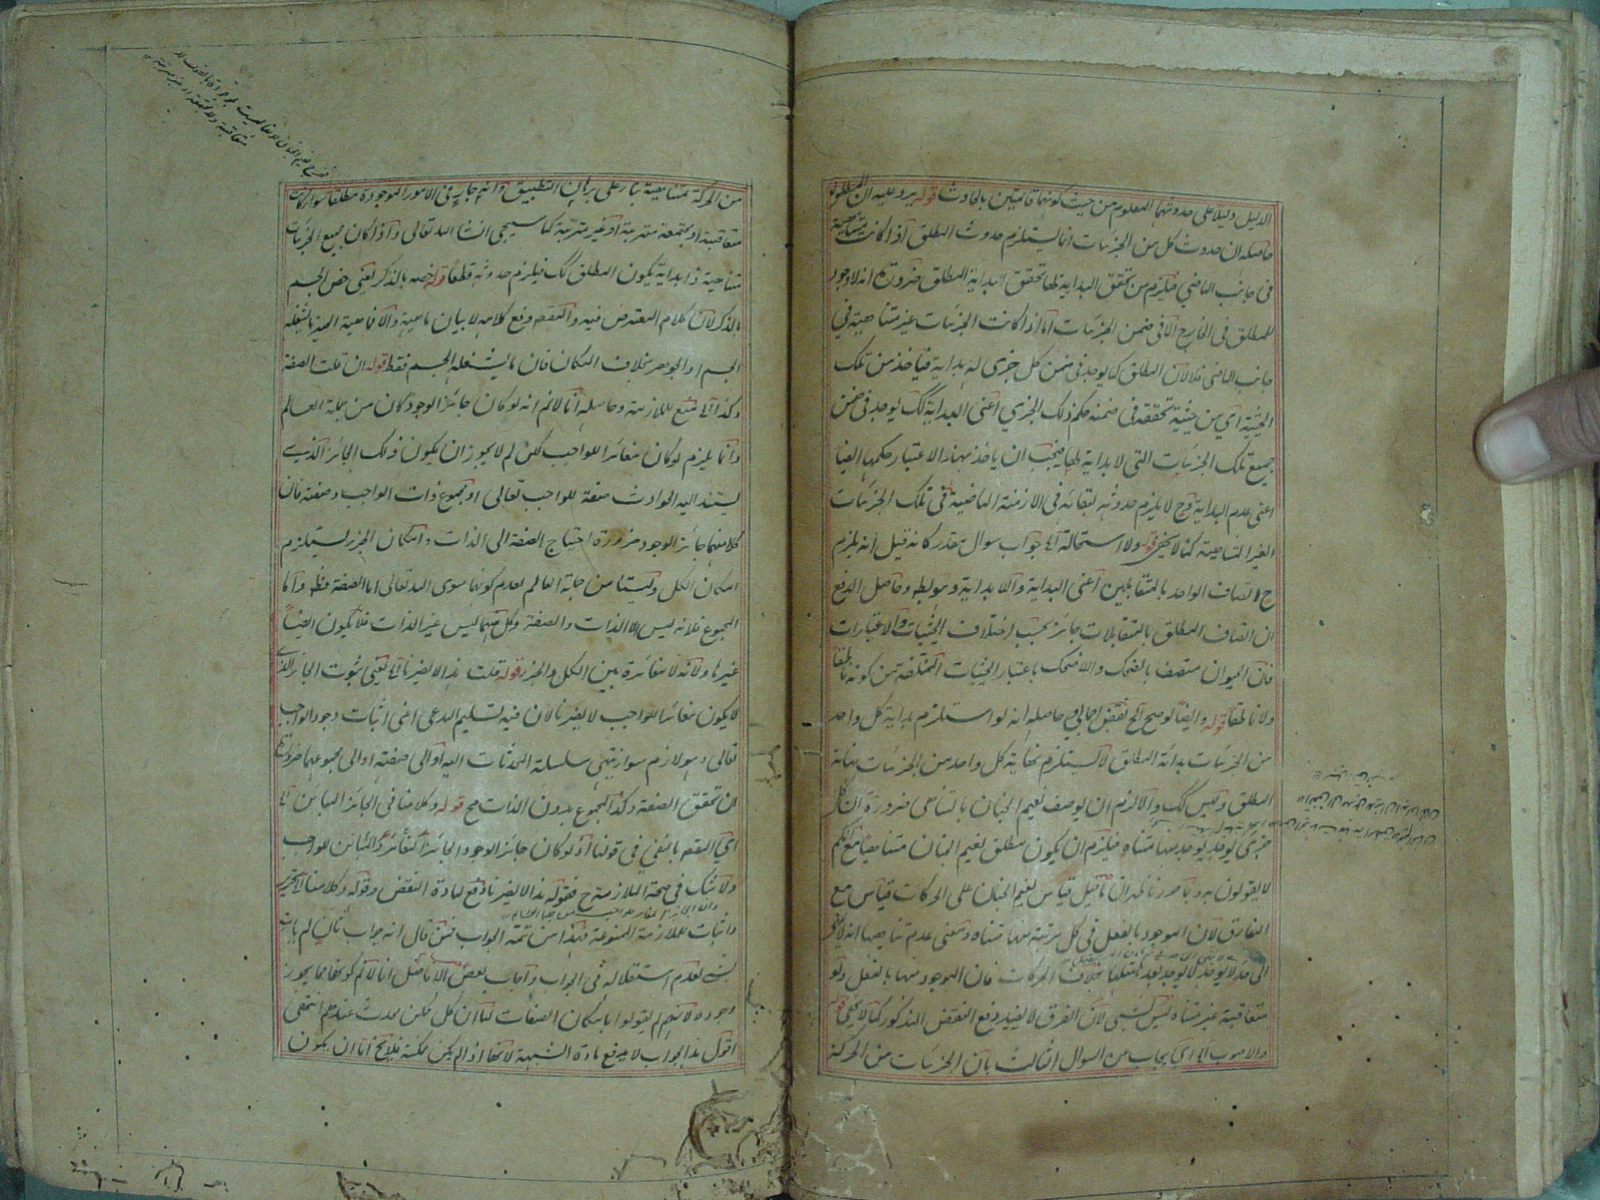 الدليل دليلا على حدوثهما المعلوم من حيث كونهما قائمتين بالحادث قوله يرد عليه ان المطلوب
حاصله ان حدوث كل من الجزئيات انما يستلزم حدوث المطلق اذا كانت متناهية
فى جانب الماضي فيلزم من تحقق البداية لها تحقق البداية المطلق ضرورة انه لا وجود
للمطلق فى الخارج الا فى ضمن الجزئيات اما اذا كانت الجزئيات غير متناهية في
جانب الماضى فلا لان المطلق كما يوجد فى ضمن كل جزئى له بداية فياخذ من تلك
الحيثية اي من حيثية تحققه فى ضمنه حكم ذلك الجزئي اعنى البداية كك يوجد فى ضمن
جميع تلك الجزئيات التى لا بداية لها فيجب ان ياخذ بهذا الاعتبار حكمها ايضا
اعنى عدم البداية وح لا يلزم حدوثه لبقائه فى الازمنة الماضية فى تلك الجزئيات
الغير المتناهية كما لا يخفى قوله ولا استحالة آه جواب سوال مقدر كانه قيل انه يلزم
ح اتصاف الواحد بالمتقابلين اعنى البداية واللا بداية وهو بط وحاصل الدفع
ان اتصاف المطلق بالمتقابلات جائز بحسب اختلاف الحيثيات والاعتبارات
فان الحيوان متصف بالضحك واللاضحك باعتبار الحيثيات المختلفة من كونه ناطقا
ولا ناطقا قوله وايضا لو صح الخ نقض اجمالي وحاصله انه لو استلزم بداية كل واحد
من الجزئيات بداية المطلق لاستلزم نهاية كل واحد من الجزئيات نهاية
المطلق وليس كك والا لزم ان يوصف نعيم الجنان بالتناهى ضرورة ان كل
جزئى يوجد منها متناه فيلزم ان يكون مطلق نعيم الجنان متناهيا مع انكم
لا يقولون به وبما حررنا ظهر ان ما قيل قياس نعيم الجنان على الحركات قياس مع
الفارق لان الموجود بالفعل فى كل مرتبة منها متناه ومعنى عدم تناهيها انه لا ينتهى
الى حد لا يوجد بعده بخلاف الحركات فان الموجود منها بالفعل ولو
متعاقبة غير متناه ليس بشيء لان الفرق لا يفيد دفع النقض المذكور كما لا يخفى قوله
والاصوب آه اي يجاب من السوال الثالث بان الجزئيات من الحركة
من الحركة متناهية بناء على برهان التطبيق وانه جار فى الامور الموجودة مطلقا سواء كانت
متعاقبة او مجتمعة مترتبة او غير مترتبة كما سيجي انشاء الله تعالى واذا كان جميع الجزئيات
متناهية ذا بداية يكون المطلق كك فيلزم حدوثه قطعا قوله خصه بالذكر يعنى خص الجسم
بالذكر لان كلام المعترض فيه والمقصود دفع كلامه لا بيان ماهية والا فماهية الحيز ما يشغله
الجسم او الجوهر بخلاف المكان فان ما يشغله الجسم فقط قوله ان قلت الصفة
وكذا آه منع للملازمة وحاصله انا لا نم انه لو كان جائز الوجود كان من جملة العالم
وانما يلزم لو كان مغائرا للواجب لكن لم لا يجوز ان يكون ذلك الجائز الذي
يستند اليه الحوادث صفة للواجب تعالى او مجموع ذات الواجب وصفته فان
كلا منهما جائز الوجود ضرورة احتياج الصفة الى الذات وامكان الجزء يستلزم
امكان الكل وليسا من جملة العالم لعدم كونهما سوى الله تعالى اما الصفة فظ واما
المجموع فلانه ليس الا الذات والصفة وكل منهما ليس غير الذات فلا يكون ايضا
غيرها ولانه لا مغائرة بين الكل والجزء قوله قلت هذا لا يضرنا آه يعنى ثبوت الجائز الذى
لا يكون مغائرا للواجب لا يضرنا لان فيه تسليم المدعى اعنى اثبات وجود الواجب
تعالى وهو لازم سواء ينتهى سلسلة المحدثات اليه او الى صفته او الى مجموعهما ضرورة
ان تحقق الصفة وكذا المجموع بدون الذات مح قوله وكلامنا فى الجائز المباين آه
اي المقصود بالنفى فى قولنا اذ لو كان جائز الوجود الجائز المغائر والمباين للواجب
ولا شك فى صحة الملازمة ح فقوله هذا لا يضرنا دفع لمادة النقض وقوله وكلامنا لا يخير
واثبات للملازمة الممنوعة فهذا من تتمة الجواب فمن قال انه جواب ثان لم يات
بشيء لعدم استقلاله فى الجواب واجاب بعض الافاضل انا لا نم كونهما مما يجوز
وجوده لانهم لم يقولوا بامكان الصفات لما ان كل ممكن محدث عندهم انتهى
اقول هذا الجواب لا يدفع مادة الشبهة لانها اذا لم يكن ممكنة فلايخ اما ان يكون